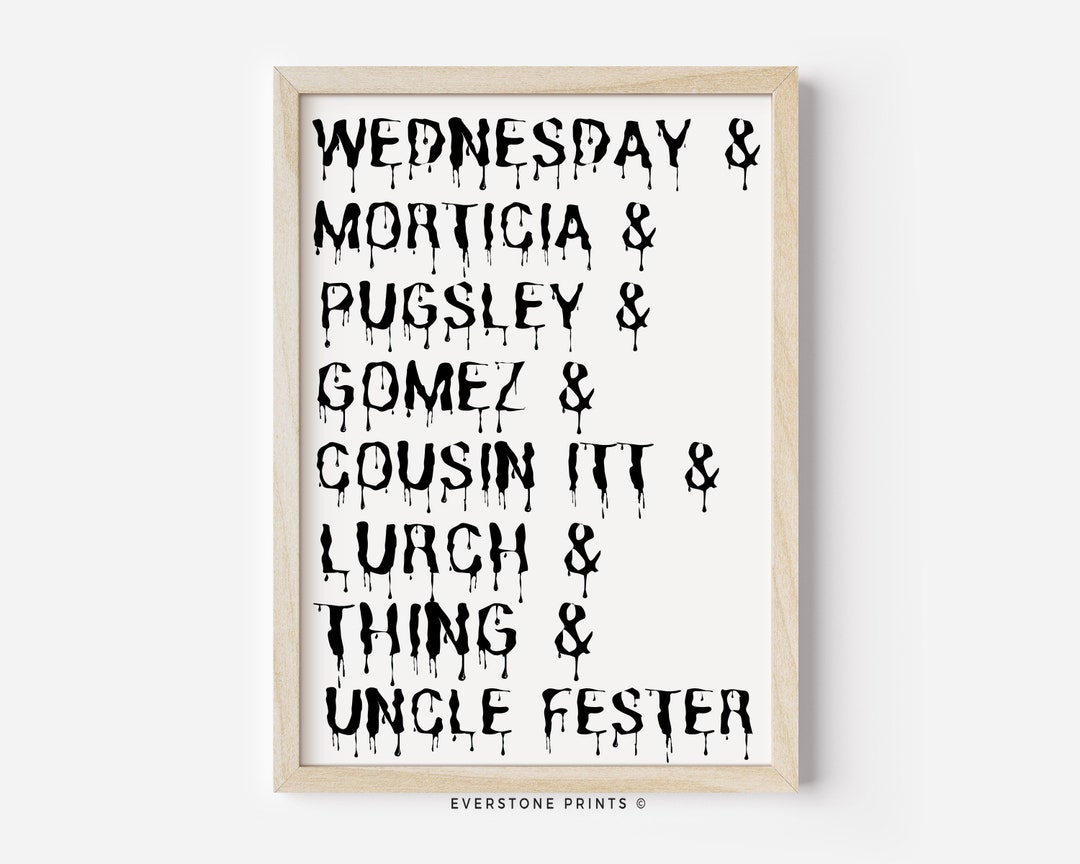 WEDNESDAY &
MORTICIA &
PUGSLEY &
GOMEZ &
COUSIN ITT &
LURCH &
THING &
UNCLE FESTER
EVERSTONE PRINTS ©